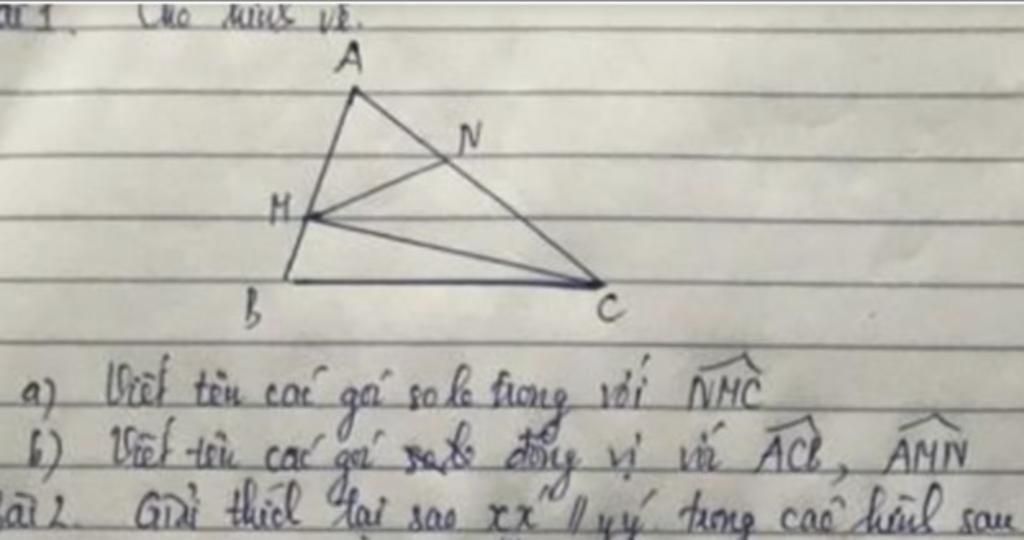 Bài 1. Cho hình vẽ.
A
N
M
B
C
a) Viết tên các góc so le trong với NMC
b) Viết tên các góc đồng vị với ACB, AMN
Bài 2. Giải thích tại sao xx' // yy' trong các hình sau